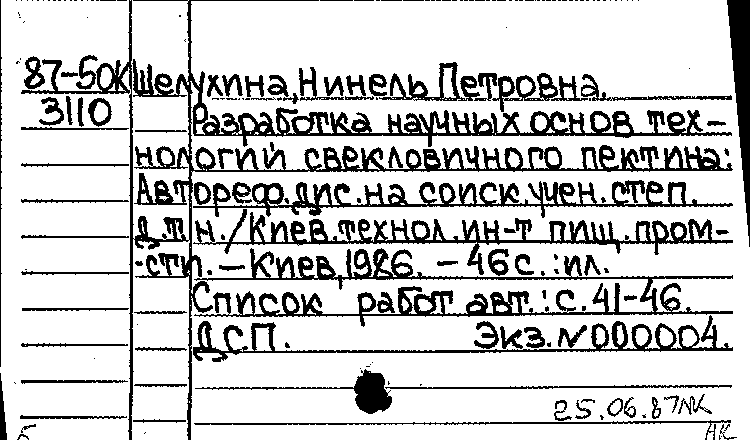 87-50К Шелухина, Нинель Петровна.
3110 Разработка научных основ тех-
нологий свекловичного пектина:
Автореф. дис. на соиск. учен. степ.
д.т.н. / Киев. технол. ин-т пищ. пром-
-сти. - Киев, 1986. - 46 с. : ил.
Список работ авт.: с. 41-46.
ДСП. Экз. N 000004.
25.06.87